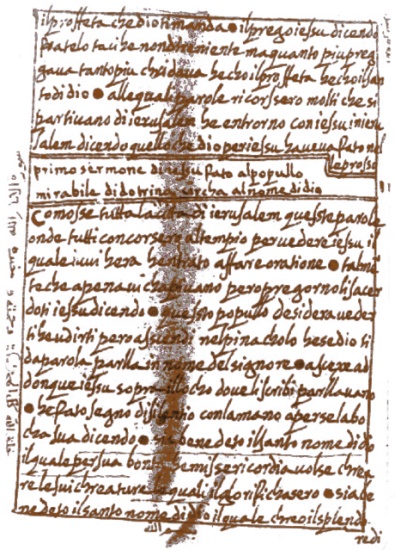 ilproffeta che dio ti manda • il prego iessu dicendo
fratelo taci he non dir niente ma quanto piu preg
gava tanto piu chridava hecho il proffeta hecho il san
to di dio • alle quali parole ricorssero molti che si
partivano di ierusalem he entrorno con iessu in ieru
salem dicendo quello che dio per iessu haveva fato nel
leprosso
primo sermone di iessu fato al popullo
mirabile di dotrina circha al nome di dio
Comosse tutta la cita di ierusalem queste parole
onde tutti concorsero al tempio per vedere iessu il
quale ivui hera hentrato affare oratione • talme
te che apena vi chapivano pero pregorno li sacer
doti iessu dicendo • questo popullo desidera veder
ti he udirti pero assendi nel pinacholo he se dio ti
da parola parlla in nome del signore • assexe ad
donque iessu sopra illocho dove li scribi parllavano
• he fato segno di silentio con la mano aperse la bo
cha sua dicendo • sia benedeto il santo nome di dio
il quale per sua bonta he misericordia volse chrea
re le sui chreature quali il glorifichasero • sia be
nedeto il santo nome di dio il quale chreo il splendo
redi